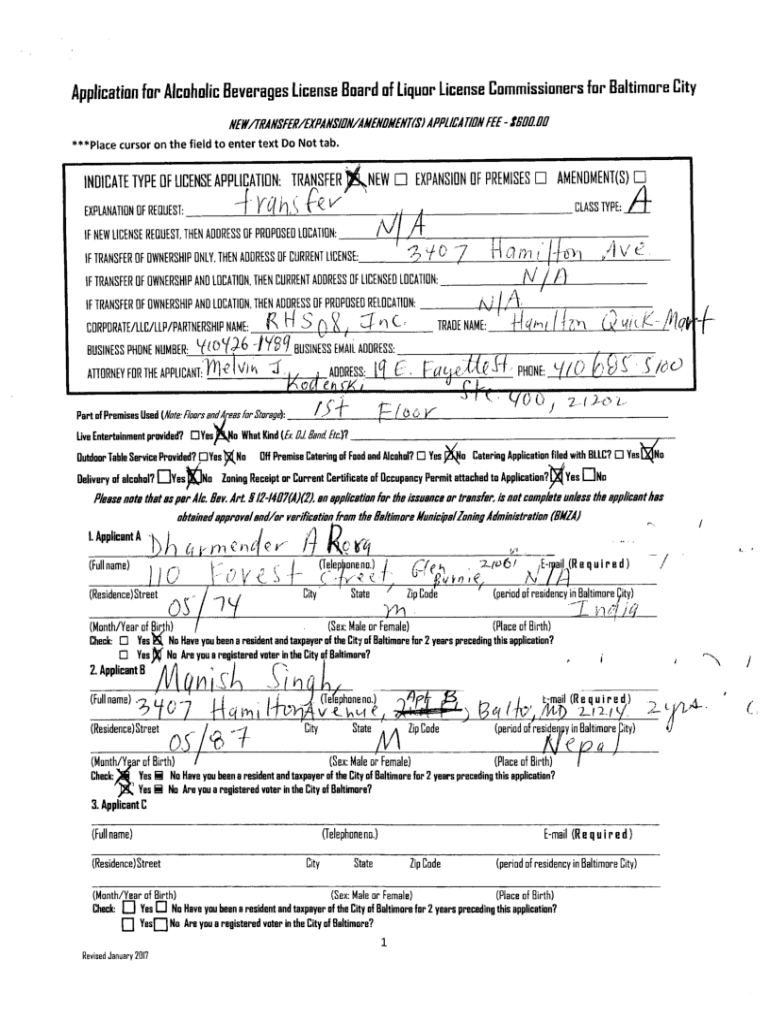 Application for Alcoholic Beverages License Board of Liquor License Commissioners for Baltimore City
NEW/TRANSFER/EXPANSION/AMENDMENT(S) APPLICATION FEE - $600.00
***Place cursor on the field to enter text Do Not tab.
INDICATE TYPE OF LICENSE APPLICATION: TRANSFER ☒ NEW ☐ EXPANSION OF PREMISES ☐ AMENDMENT(S) ☐
EXPLANATION OF REQUEST: transfer CLASS TYPE: A
IF NEW LICENSE REQUEST, THEN ADDRESS OF PROPOSED LOCATION: N/A
IF TRANSFER OF OWNERSHIP ONLY, THEN ADDRESS OF CURRENT LICENSE: 3407 Hamilton Ave.
IF TRANSFER OF OWNERSHIP AND LOCATION, THEN CURRENT ADDRESS OF LICENSED LOCATION: N/A
IF TRANSFER OF OWNERSHIP AND LOCATION, THEN ADDRESS OF PROPOSED RELOCATION: N/A
CORPORATE/LLC/LLP/PARTNERSHIP NAME: RHS08, Inc. TRADE NAME: Hamilton Quick-Mart
BUSINESS PHONE NUMBER: 410426-1489 BUSINESS EMAIL ADDRESS:
ATTORNEY FOR THE APPLICANT: Melvin J. Kodenski ADDRESS: 19 E. Fayette St. PHONE: 410 685 5100
Ste. 400, 21202
Part of Premises Used (Note: Floors and Areas for Storage): 1st Floor
Live Entertainment provided? ☐Yes ☒No What Kind (Ex. DJ, Band, Etc.)?
Outdoor Table Service Provided? ☐Yes ☒ No Off Premise Catering of Food and Alcohol? ☐ Yes ☒ No Catering Application filed with BLLC? ☐ Yes ☒ No
Delivery of alcohol? ☐Yes ☒No Zoning Receipt or Current Certificate of Occupancy Permit attached to Application? ☒ Yes ☐No
Please note that as per Alc. Bev. Art. § 12-1407(A)(2), an application for the issuance or transfer, is not complete unless the applicant has
obtained approval and/or verification from the Baltimore Municipal Zoning Administration (BMZA)
1. Applicant A Dharmender A Rora
(Full name) (Telephone no.) E-mail (Required)
110 Forest Street, Glen Burnie, 21061 N/A
(Residence) Street City State Zip Code (period of residency in Baltimore City)
05/74 m India
(Month/Year of Birth) (Sex: Male or Female) (Place of Birth)
Check: ☐ Yes ☒ No Have you been a resident and taxpayer of the City of Baltimore for 2 years preceding this application?
☐ Yes ☒ No Are you a registered voter in the City of Baltimore?
2. Applicant B Manish Singh,
(Full name) (Telephone no.) E-mail (Required)
3407 Hamilton Avenue, Apt B, Balto, MD 21214 2 yrs.
(Residence) Street City State Zip Code (period of residency in Baltimore City)
05/87 M Nepal
(Month/Year of Birth) (Sex: Male or Female) (Place of Birth)
Check: ☒ Yes ☐ No Have you been a resident and taxpayer of the City of Baltimore for 2 years preceding this application?
☒ Yes ☐ No Are you a registered voter in the City of Baltimore?
3. Applicant C
(Full name) (Telephone no.) E-mail (Required)
(Residence) Street City State Zip Code (period of residency in Baltimore City)
(Month/Year of Birth) (Sex: Male or Female) (Place of Birth)
Check: ☐ Yes ☐ No Have you been a resident and taxpayer of the City of Baltimore for 2 years preceding this application?
☐ Yes ☐ No Are you a registered voter in the City of Baltimore?
1
Revised January 2017